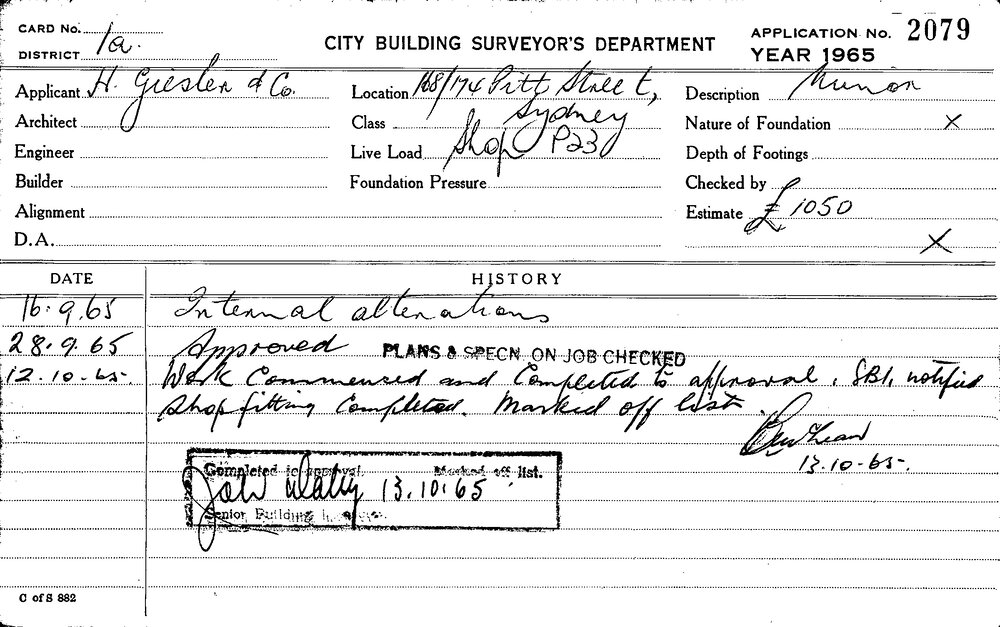 CARD No. 1a.
DISTRICT
CITY BUILDING SURVEYOR'S DEPARTMENT
APPLICATION No. 2079
YEAR 1965
Applicant H. Giesler & Co.
Location 168/174 Pitt Street,
Sydney
Description Minor
Architect
Class Shop P23
Nature of Foundation X
Engineer
Live Load
Depth of Footings
Builder
Foundation Pressure
Checked by
Alignment
Estimate £1050
D.A.
X
DATE HISTORY
16.9.65 Internal alterations
28.9.65 Approved PLANS & SPECN. ON JOB CHECKED
12.10.65. Work Commenced and Completed to approval. SBI. notified
Shopfitting Completed. Marked off list.
13.10.65.
Completed to approval. Marked off list.
13.10.65
Senior Building
C of S 882